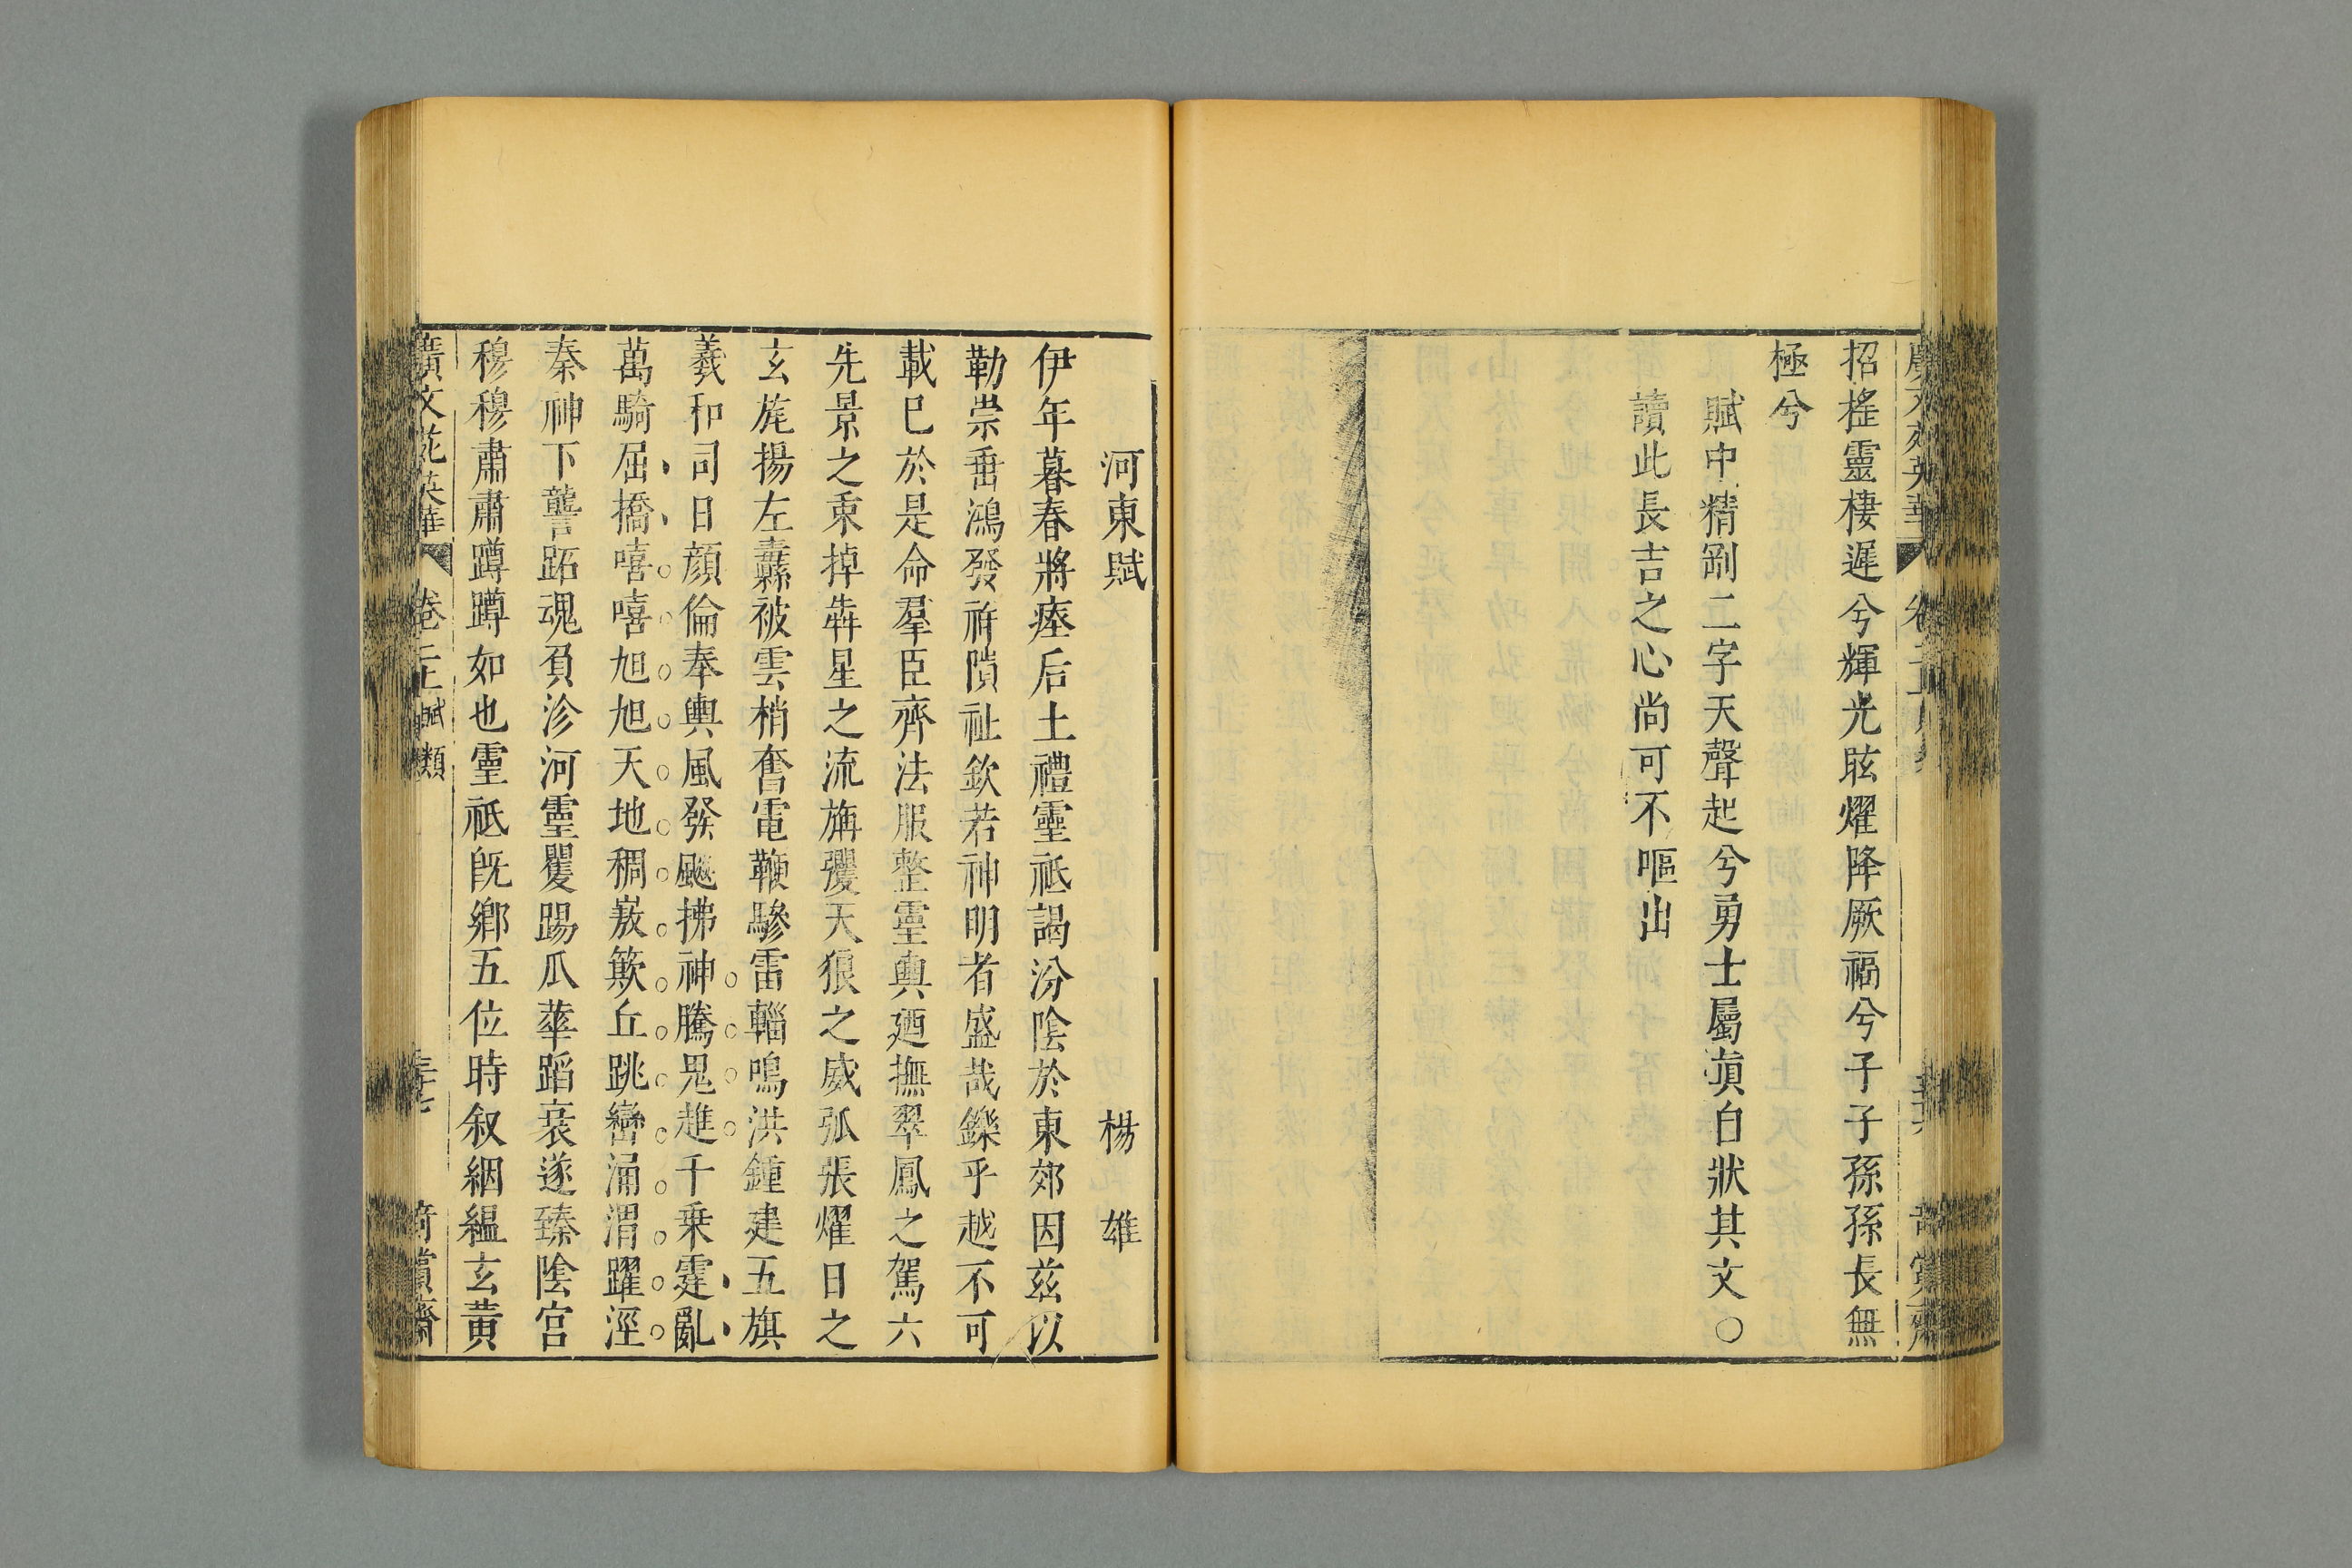 招搖靈棲遲兮輝光眩燿降厥福兮子子孫孫長無
極兮
賦中精剛二字天聲起兮勇士屬眞自狀其文〇
讀此長吉之心尚可不嘔出
河東賦 楊雄
伊年暮春將瘞后土禮靈祇謁汾陰於東郊因茲以
勒崇垂鴻發祥隤祉欽若神明者盛哉鑠乎越不可
載巳於是命羣臣齊法服整靈輿廼撫翠鳳之駕六
先景之乘掉犇星之流旃彏天狼之威弧張燿日之
玄旄揚左纛被雲梢奮電鞭驂雷輜鳴洪鐘建五旗
羲和司日顔倫奉輿風發飈拂神騰鬼趡千乗霆亂
萬騎屈橋嘻嘻旭旭天地稠嶅簸丘跳巒涌渭躍涇
秦神下讋跖魂負沴河靈矍踢爪華蹈衰遂臻陰宮
穆穆肅肅蹲蹲如也靈祇旣鄕五位時叙絪縕玄黄
廣文苑英華 卷二上 賦類 三十七 奇賞齋